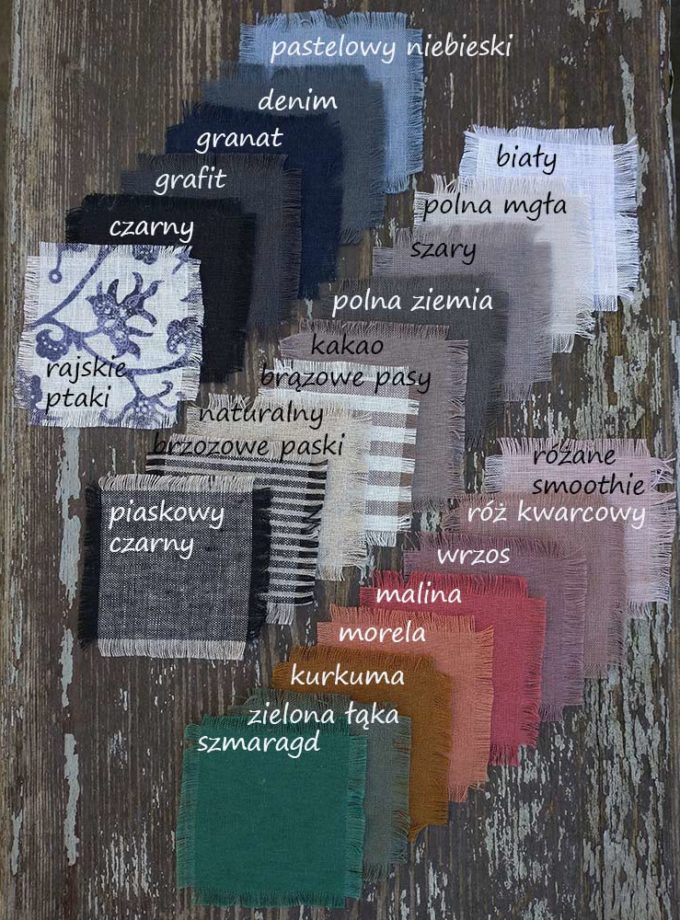 pastelowy niebieski
denim
granat
grafit
czarny
rajskie
ptaki
biały
polna mgła
szary
polna ziemia
kakao
brązowe pasy
naturalny
brzozowe paski
piaskowy
czarny
różane
smoothie
róż kwarcowy
wrzos
malina
morela
kurkuma
zielona łąka
szmaragd